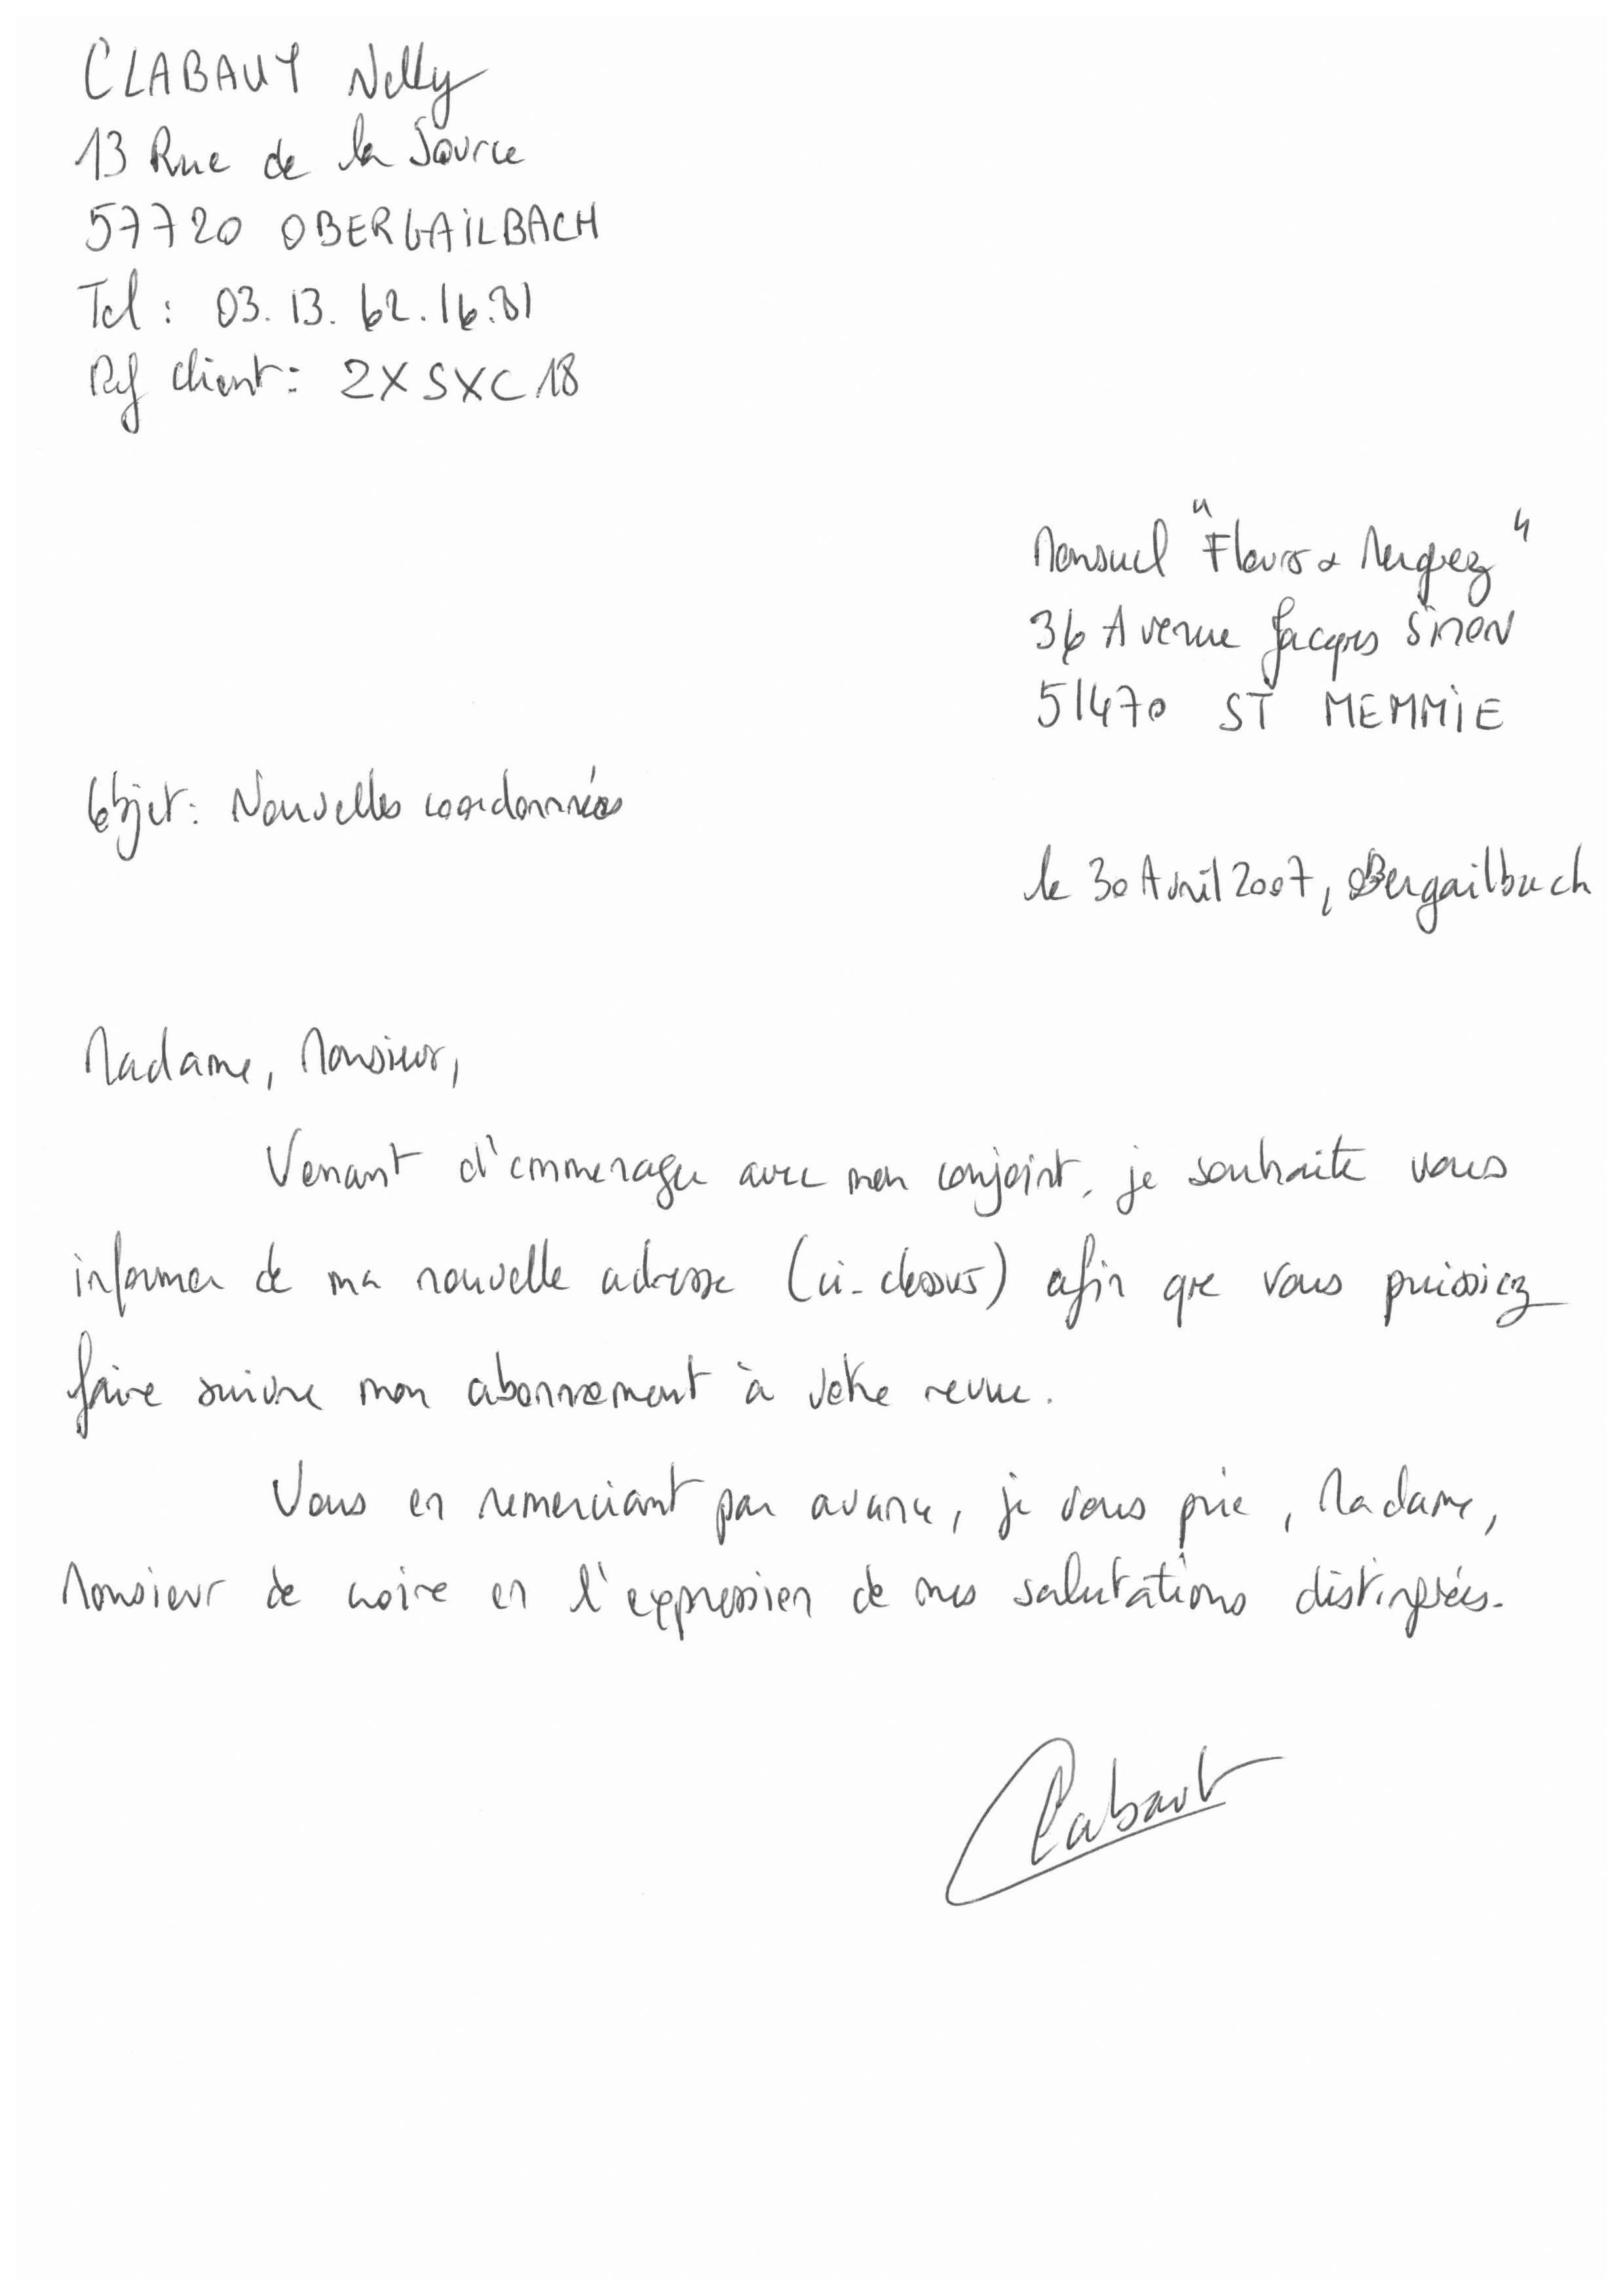 CLABAUT Nelly
13 Rue de la Source
57720 OBERGAILBACH
Tel : 03.13.62.16.81
Ref client : 2XSXC18
Mensuel "Fleurs & Merguez"
36 Avenue Jacques SIMON
51470 ST MEMMIE
Objet : Nouvelles coordonnées
le 30 Avril 2007, OBergailbach
Madame, Monsieur,
Venant d'emmenager avec mon conjoint, je souhaite vous
informer de ma nouvelle adresse (ci-dessus) afin que vous puissiez
faire suivre mon abonnement à votre revue.
Vous en remerciant par avance, je vous prie, Madame,
Monsieur de croire en l'expression de mes salutations distinguées.
Clabaut